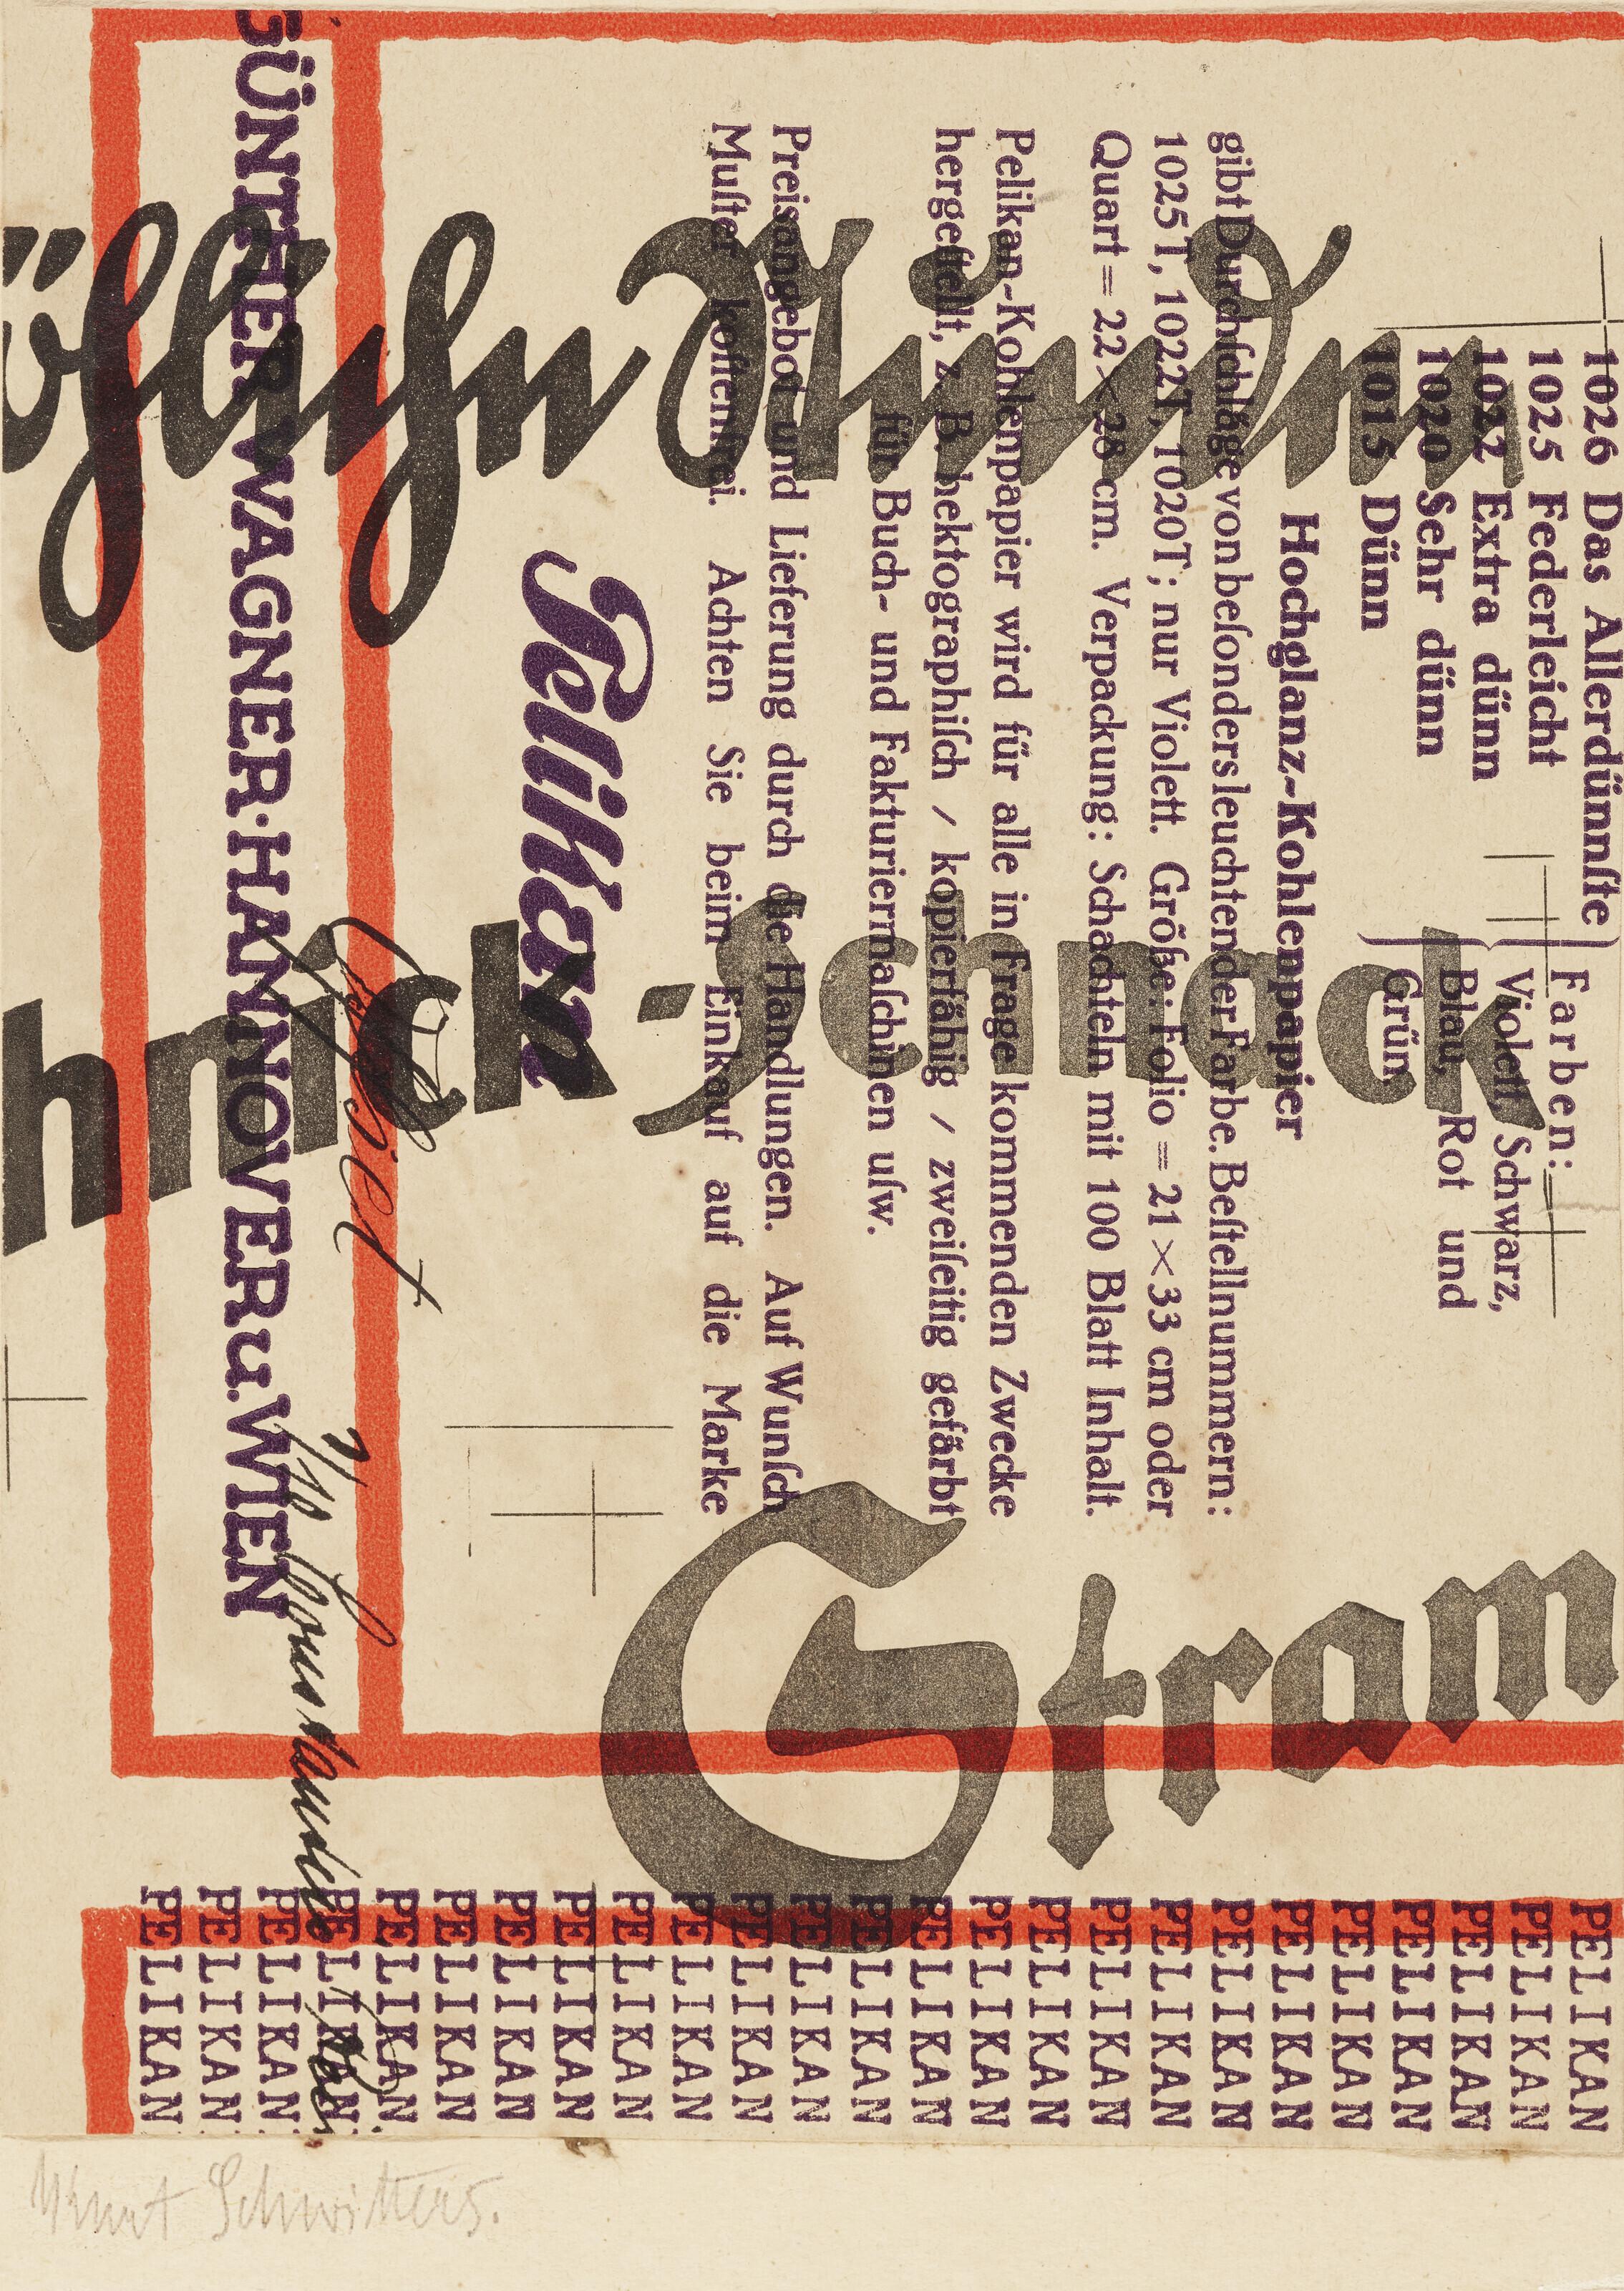 1026 Das Allerdünnſte
1025 Federleicht
1022 Extra dünn
1020 Sehr dünn
1015 Dünn
Farben:
Violett, Schwarz,
Blau, Rot und
Grün.
Hochglanz-Kohlenpapier
gibt Durchſchläge von beſonders leuchtender Farbe. Beſtellnummern:
1025T, 1022T, 1020T; nur Violett. Größe: Folio = 21 × 33 cm oder
Quart = 22 × 28 cm. Verpackung: Schachteln mit 100 Blatt Inhalt.
Pelikan-Kohlenpapier wird für alle in Frage kommenden Zwecke
hergeſtellt, z. B. hektographiſch / kopierfähig / zweiſeitig gefärbt
für Buch- und Fakturiermaſchinen uſw.
Preisangebot und Lieferung durch die Handlungen. Auf Wunſch
Muſter koſtenfrei. Achten Sie beim Einkauf auf die Marke
Pelikan
GÜNTHER WAGNER·HANNOVER u. WIEN
Stram
PELIKAN
PELIKAN
PELIKAN
PELIKAN
PELIKAN
PELIKAN
PELIKAN
PELIKAN
PELIKAN
PELIKAN
PELIKAN
PELIKAN
PELIKAN
PELIKAN
PELIKAN
PELIKAN
PELIKAN
PELIKAN
PELIKAN
PELIKAN
PELIKAN
PELIKAN
PELIKAN
PELIKAN
PELIKAN
Kurt Schwitters.